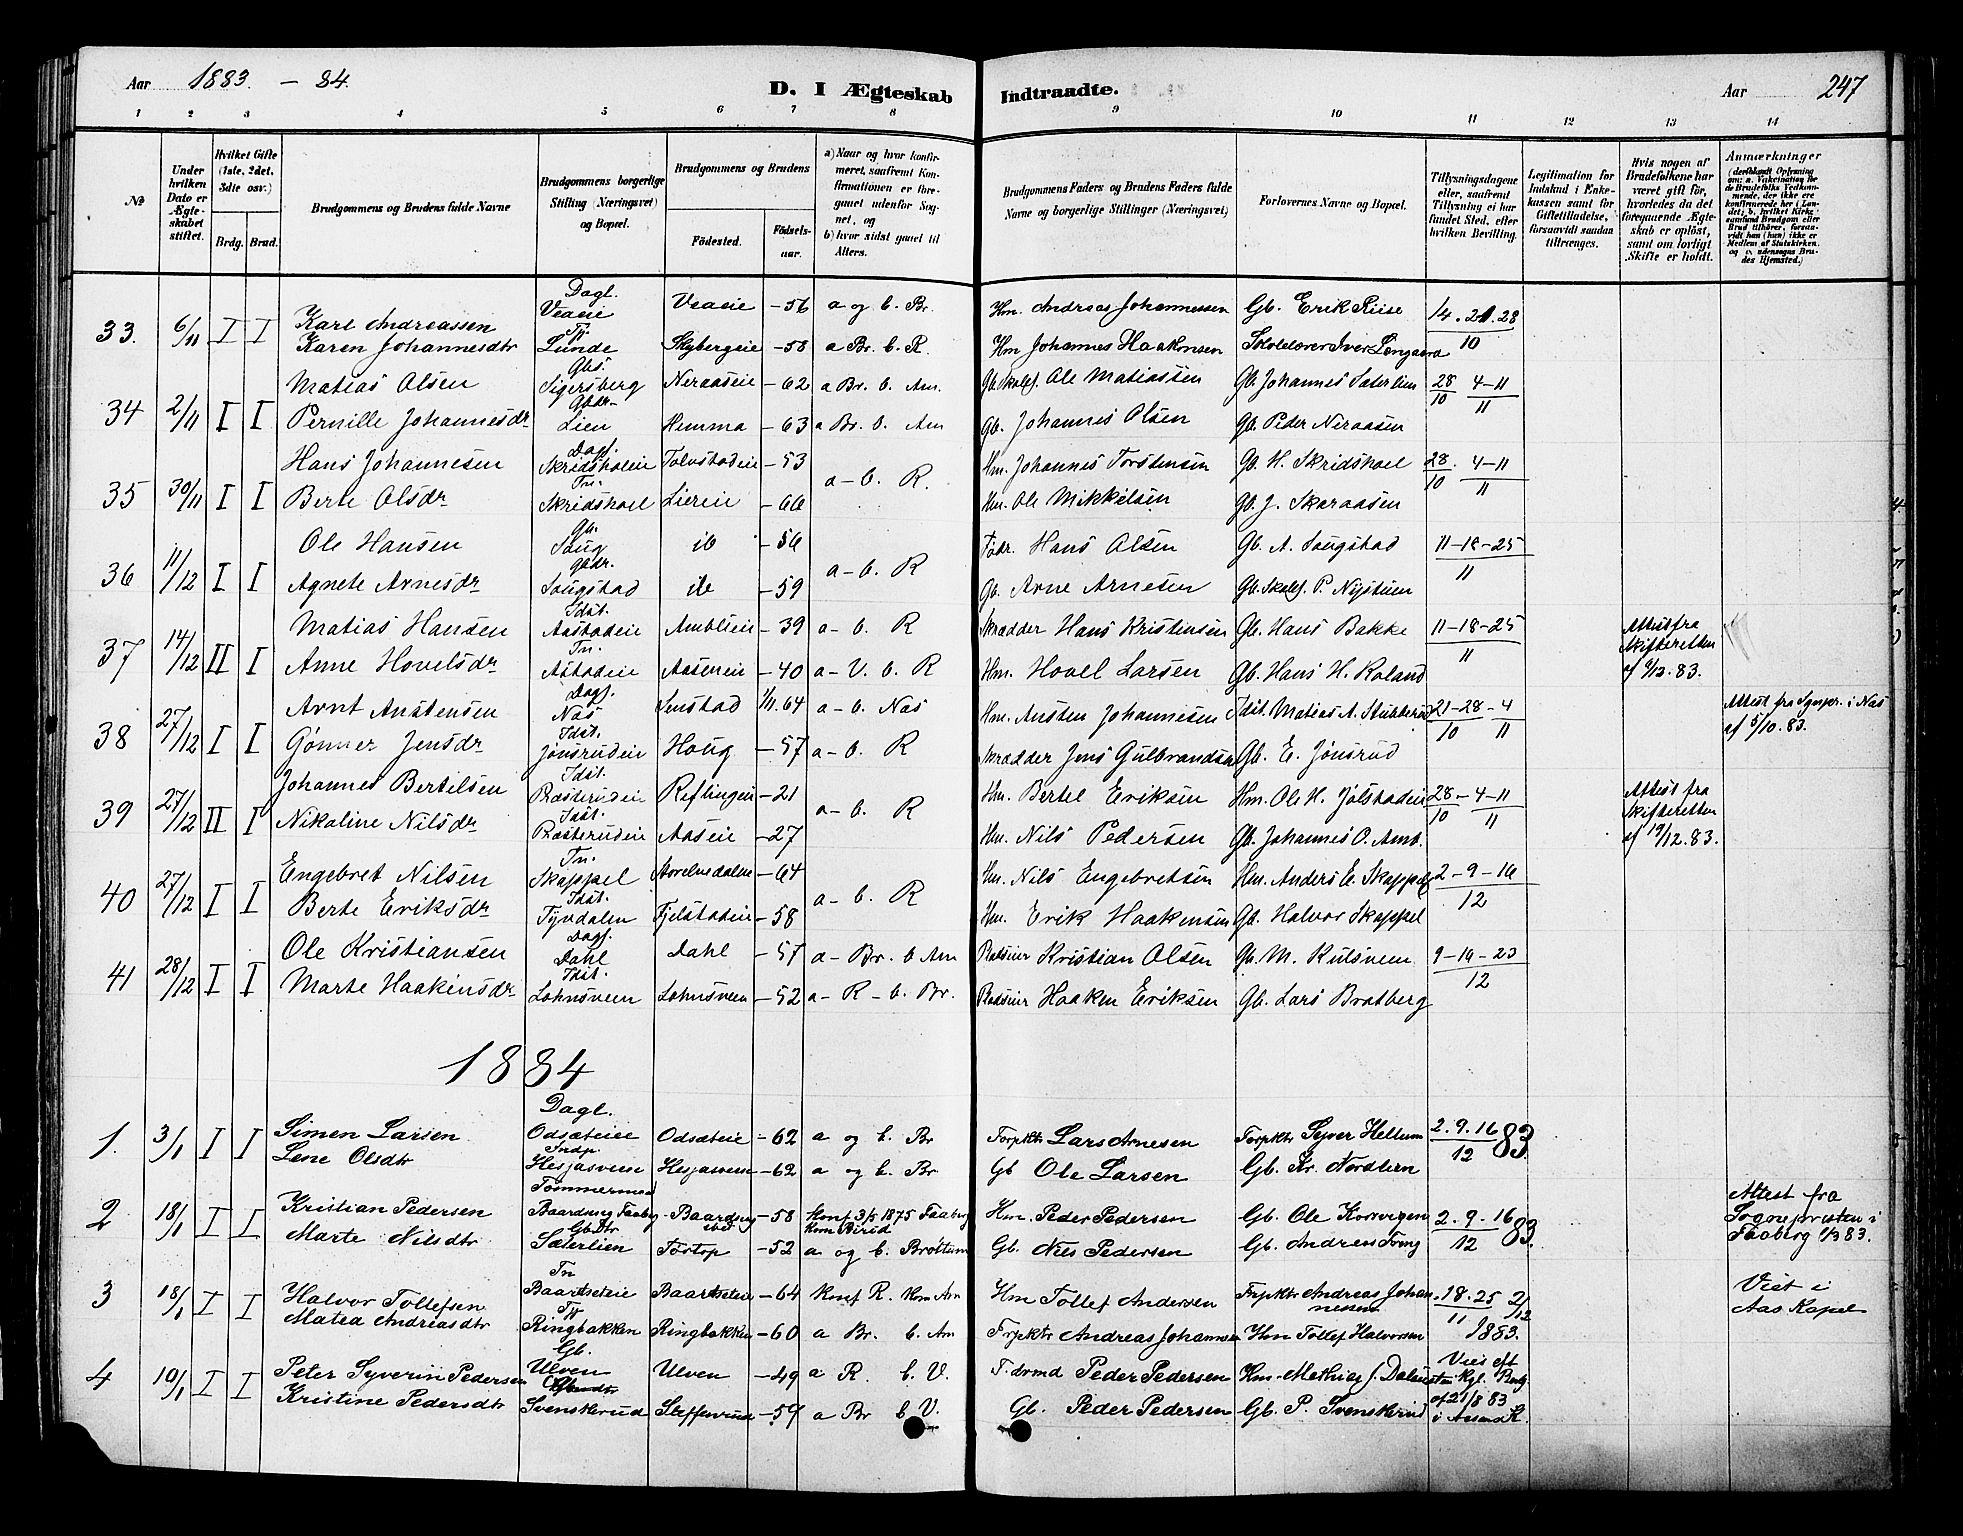 Aar 1883. – 84.
D. I Ægteskab Indtraadte.
Aar 247
1 2 3 4 5 6 7 8 9 10 11 12 13 14
№
Under hvilken Dato er Ægteskabet stiftet.
Hvilket Gifte (1ste, 2det, 3die osv.)
Brdg. Brud.
Brudgommens og Brudens fulde Navne
Brudgommens borgerlige Stilling (Næringsvei) og Bopæl.
Brudgommens og Brudens
Fødested.
Fødselsaar.
a) Naar og hvor konfirmeret, saafremt Konfirmationen er foregaaet udenfor Sognet, og
b) hvor sidst gaaet til Alters.
Brudgommens Faders og Brudens Faders fulde Navne og borgerlige Stillinger (Næringsvei)
Forlovernes Navne og Bopæl.
Tillysningsdagene eller, saafremt Tillysning ei har fundet Sted, efter hvilken Bevilling.
Legitimation for Indskud i Enkekassen samt for Giftetilladelse, forsaavidt saadan tiltrænges.
Hvis nogen af Brudefolkene har været gift før, hvorledes da det foregaaende Ægteskab er opløst, samt om lovligt Skifte er holdt.
Anmærkninger
33. 6/11 I I Karl Andreassen Dagl. Veaeie Veaeie –56 a og b. Br. Hm. Andreas Johannessen Gb. Erik Riise 14. 21. 28
Karen Johannesdtr Tj. Lunde Skybergeie –58 a Br. b. R. Hm Johannes Haakonsen Iver Lengaard 10
34 2/11 I I Matias Olsen Gbs. Sigersberg Neraaseie –62 a Br. b. Am. Gb. Skolef. Ole Matiassen Gb. Johannes Sæterlien 28/10 4–11/11
Pernille Johannesdr Gbdr– Lien Hemma –63 a Br. b. Am Gb. Johannes Olsen Gb. Peder Neraasen
35 30/11 I I Hans Johannesen Dagl. Skridsholeie Tolvstadeie –53 a–b. R. Hm. Johannes Torstensen Gb. H. Skridshoel 28/10 4–11/11
Berte Olsdr Tn. Skridshoel Liereie –66 Hm. Ole Mikkelsen Gb. J. Skaraasen
36 11/12 I I Ole Hansen Gb. Saug ib –56 a–b. R Fødr. Hans Olsen Gb. A. Saugstad 11–18–25
Agnete Arnesdr Gbdr. Saugstad ib –59 Gb. Arne Arnesen Gb. Skolef. P. Nystuen 11
37 14/12 II I Matias Hansen Idst. Aastadeie Ambleie –39 a–b. R Skrædder Hans Kristensen Gb. Hans Bakke 11–18–25 Attest fra Skifteretten
Anne Hovelsdr Tn. Astadeie Aaseneie –40 a–V. b. R Hm. Hovel Larsen Gb. Hans H. Roland 11 af 9/12. 83.
38 27/12 I I Arnt Anstensen Dagl. Nås Senstad 1/11. 64 a–b. Nås Hm. Ansten Johannesen Idst. Matias A. Stubberud 21–28–4 Attest fra Sognepr. i Nås
Gønner Jensdr Idst. Jønsrudeie Houg –57 a–b. R Skrædder Jens Gulbrandsen Gb. E. Jønsrud 10 11 af 5/10. 83.
39 27/12 II I Johannes Bertilsen Idst. Ræsterudeie Reflingeie –21 a–b. R Hm. Bertel Eriksen Hm. Ole H. Jølstadeie 28–4–11 Attest fra Skifteretten
Nikoline Nilsdr Idst. Ræsterudeie Aaseie –27 Hm. Nils Pedersen Gb. Johannes O. Amb. 10 11 af 19/12. 83.
40 27/12 I I Engebret Nilsen Tn. Skappel –64 a–b. R Hm. Nils Engebretsen Hm. Anders E. Skappel 2–9–16
Berte Eriksdr Idst. Tyvdalen Fjelstadeie –58 Hm. Erik Haakensen Gb. Halvor Skappel 12
41 28/12 I I Ole Kristiansen Dagl. Dahl Dahl –57 a–Br. b Am Kristian Olsen Gb. M. Kulsveen 9–16–23
Marte Haakensdr Idst. Lohnsveen Lohnsveen –52 a–R–b. Br. Haaken Eriksen Gb. Lars Bratberg 12
1884
1. 3/1 I I Simen Larsen Dagl. Odsæteiee Odsæteie –62 a og b. Br Forpktr Lars Arnesen Forpktr Syver Hellum 2. 9. 16 83
Lene Olsdtr Indp. Hesjasveen Hesjasveen –62 a og b. Br Gb Ole Larsen Gb. Kr. Nordlien 12
2 18/1 I I Kristian Pedersen Tømmermand Baardseng Faaberg Baardseng –58 Konf 3/5 1875 Faaberg Kom Birid Hm. Peder Pedersen Gb. Ole Korvegen 2. 9. 16 83. Attest fra Sognepresten i
Marte Nilsdtr Gb.Dtr Sæterlien Tortop –52 a og b. Brøttum Gb. Niels Pedersen Gb. Andreas Toeng 12 Faaberg 1/3 83.
3 18/1 I I Halvor Tollefsen Tn Baardseteie Baardseteie –64 Konf R. Kom Am Hm Tollef Andersen Frpktr Andreas Johannessen 18. 25 2/12 Viet i
Matea Andreasdtr Tj. Ringbakken Ringbakken –60 a Br. b. Am Frpktr Andreas Johannsen Hm Tollef Halvorsen 11 1883. Aas Kapel
4 10/1 I I Peter Syverin Pedersen Gb. Ulven Ulven –49 a R. b. V. F. drmd Peder Pedersen Hm. Mathias J. Dalen Vies eft Kgl. Bevlg
Kristine Pedersdtr Svenskerud Steffenrud –59 a Br b V. Gb. Peder Pedersen Gb. P. Svenskerud af 21/8 83